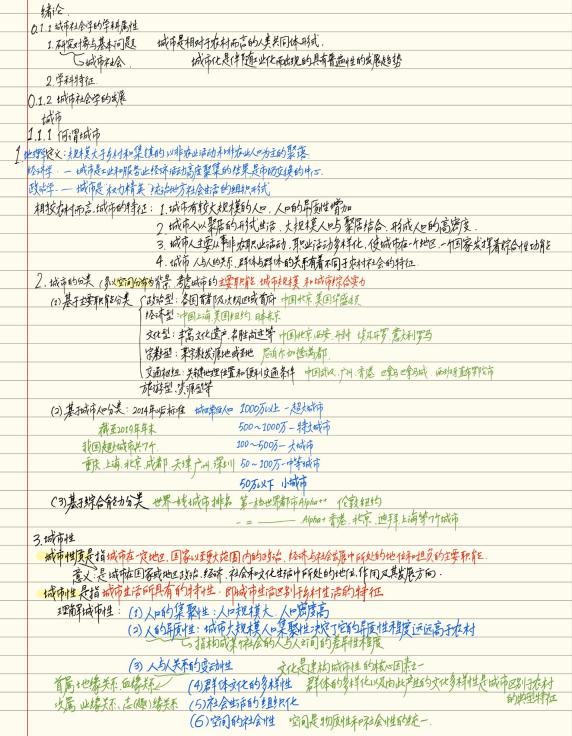 绪论
0.1.1 城市社会学的学科属性
1.研究对象与基本问题 城市是相对于农村而言的人类共同体形式.
城市社会. 城市化是伴随工业化而出现的具有普遍性的发展趋势
2.学科特征.
0.1.2 城市社会学的发展
城市
1.1.1 何谓城市
1.地理学定义:规模大于乡村和集镇的以非农业活动和非农业人口为主的聚落
经济学.— 城市是工业和服务业经济活动高度聚集的结果是市场交换的中心.
政治学.— 城市是权力精英 地方社会生活的组织形式
相较农村而言,城市的特征:1.城市有较大规模的人口,人口的异质性增加
2.城市人以聚居的形式生活.大规模人口与聚居结合.形成人口的高密度.
3.城市人主要从事非农职业活动,职业活动多样化,使城市在一个地区、一个国家发挥着综合性功能
4.城市人与人的关系,群体与群体的关系有着不同于农村社会的特征.
2.城市的分类(多以空间分布为背景,考虑城市的主要职能、城市规模和城市综合实力
(1)基于主要职能分类 政治型:各国首都及次级区域首府 中国北京,美国华盛顿
经济型:中国上海,美国纽约,日本东京
文化型:丰富文化遗产、名胜古迹等 中国北京,西安,开封 埃及开罗,意大利罗马
宗教型:某宗教发源地或圣地 尼泊尔加德满都.
交通枢纽:关键地理位置和便利交通条件 中国武汉,广州,香港 巴拿马巴拿马城
旅游型、资源型等
(2)基于城市人口分类:2014年城市标准 城区常住人口 1000万以上 — 超大城市
截至2019年年末 500~1000万 — 特大城市
我国超大城市共7个. 100~500万 — 大城市
重庆 上海,北京,成都,天津,广州,深圳 50~100万 — 中等城市
50万以下 小城市
(3)基于综合能力分类 世界一线城市排名 第一档世界都市Alpha++ 伦敦纽约
Alpha+ 香港、北京、迪拜 上海等7个城市
3.城市性
城市性质是指城市在一定地区、国家以至更大范围内的政治、经济与社会发展中所处的地位和担负的主要职能.
意义:是城市在国家或地区政治、经济、社会和文化生活中所处的地位、作用及其发展方向.
城市性是指城市生活所具有的特性.即城市生活区别于乡村生活的特征
理解城市性:(1)人口的集聚性:人口规模大、人口密度高
(2)人的异质性:城市大规模人口集聚性决定了它的异质性程度远远高于农村
指构成某个社会的人与人之间的差异性程度
(3)人与人关系的变动性 文化是建构城市性的核心因素之一
首属:地缘关系、血缘关系 (4)群体文化的多样性 群体的多样化以及由此产生的文化多样性是城市区别于农村的典型特征
次属 业缘关系、志(趣)缘关系 (5)社会生活的组织化
(6)空间的社会性 空间是物质性和社会性的统一.